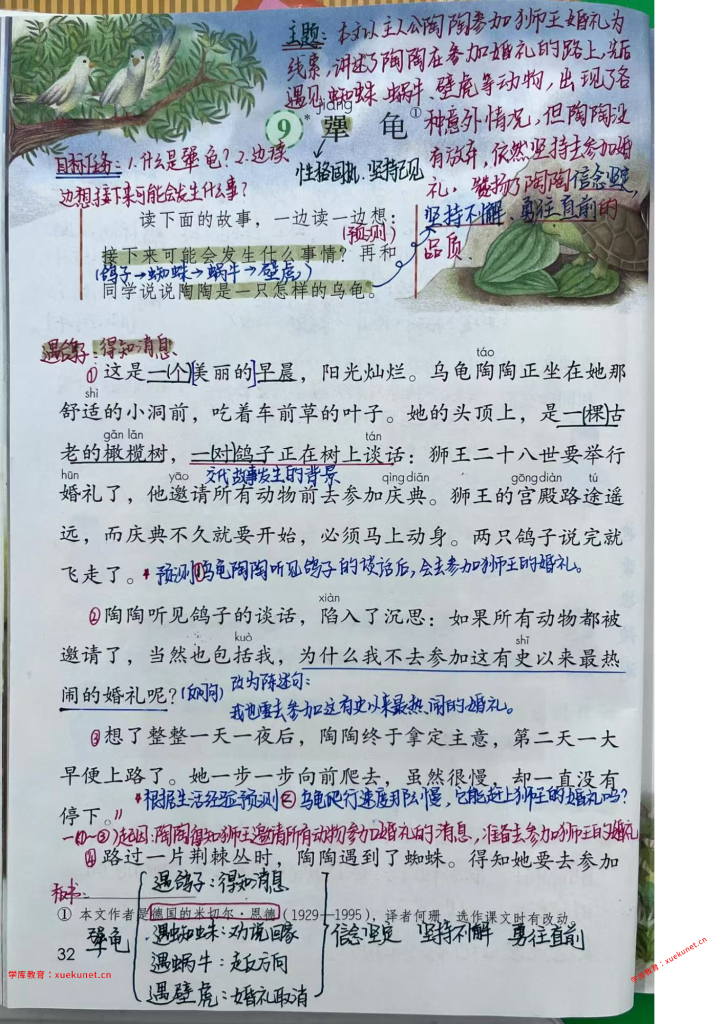 主题：本文以主人公陶陶参加狮王婚礼为
线索，讲述了陶陶在参加婚礼的路上，先后
遇见蜘蛛、蜗牛、壁虎等动物，出现了各
种意外情况，但陶陶没
有放弃，依然坚持去参加婚
礼。赞扬了陶陶信念坚定、
坚持不懈、勇往直前的
品质。
jiàng
⑨* 犟 龟①
性格固执、坚持己见
目标任务：1.什么是犟龟？2.边读
边想接下来可能会发生什么事？
读下面的故事，一边读一边想：
（预测）
接下来可能会发生什么事情？再和
（鸽子→蜘蛛→蜗牛→壁虎）
同学说说陶陶是一只怎样的乌龟。
遇鸽子：得知消息
táo
①这是一（个）[美丽的]早晨，阳光灿烂。乌龟陶陶正坐在她那
shì
舒适的小洞前，吃着车前草的叶子。她的头顶上，是一（棵）古
gǎn lǎn tán
老的橄榄树，一（对）鸽子正在树上谈话：狮王二十八世要举行
交代故事发生的背景
hūn yāo qìng diǎn gōng diàn tú
婚礼了，他邀请所有动物前去参加庆典。狮王的宫殿路途遥
远，而庆典不久就要开始，必须马上动身。两只鸽子说完就
飞走了。*预测①乌龟陶陶听见鸽子的谈话后，会去参加狮王的婚礼。
xiàn
②陶陶听见鸽子的谈话，陷入了沉思：如果所有动物都被
kuò shǐ
邀请了，当然也包括我，为什么我不去参加这有史以来最热
闹的婚礼呢？（反问）改为陈述句：
我也要去参加这有史以来最热闹的婚礼。
③想了整整一天一夜后，陶陶终于拿定主意，第二天一大
早便上路了。她一步一步向前爬去，虽然很慢，却一直没有
停下。//*根据生活经验预测②乌龟爬行速度那么慢，它能赶上狮王的婚礼吗？
一（①～③）起因：陶陶得知狮王邀请所有动物参加婚礼的消息，准备去参加狮王的婚礼
④路过一片荆棘丛时，陶陶遇到了蜘蛛。得知她要去参加
板书：
遇鸽子：得知消息
① 本文作者是德国的米切尔·恩德（1929—1995），译者何珊，选作课文时有改动。
32 犟龟 遇蜘蛛：劝说回家 信念坚定 坚持不懈 勇往直前
遇蜗牛：走反方向
遇壁虎：婚礼取消
学库教育：xuekunet.cn
学库教育：xuekunet.cn